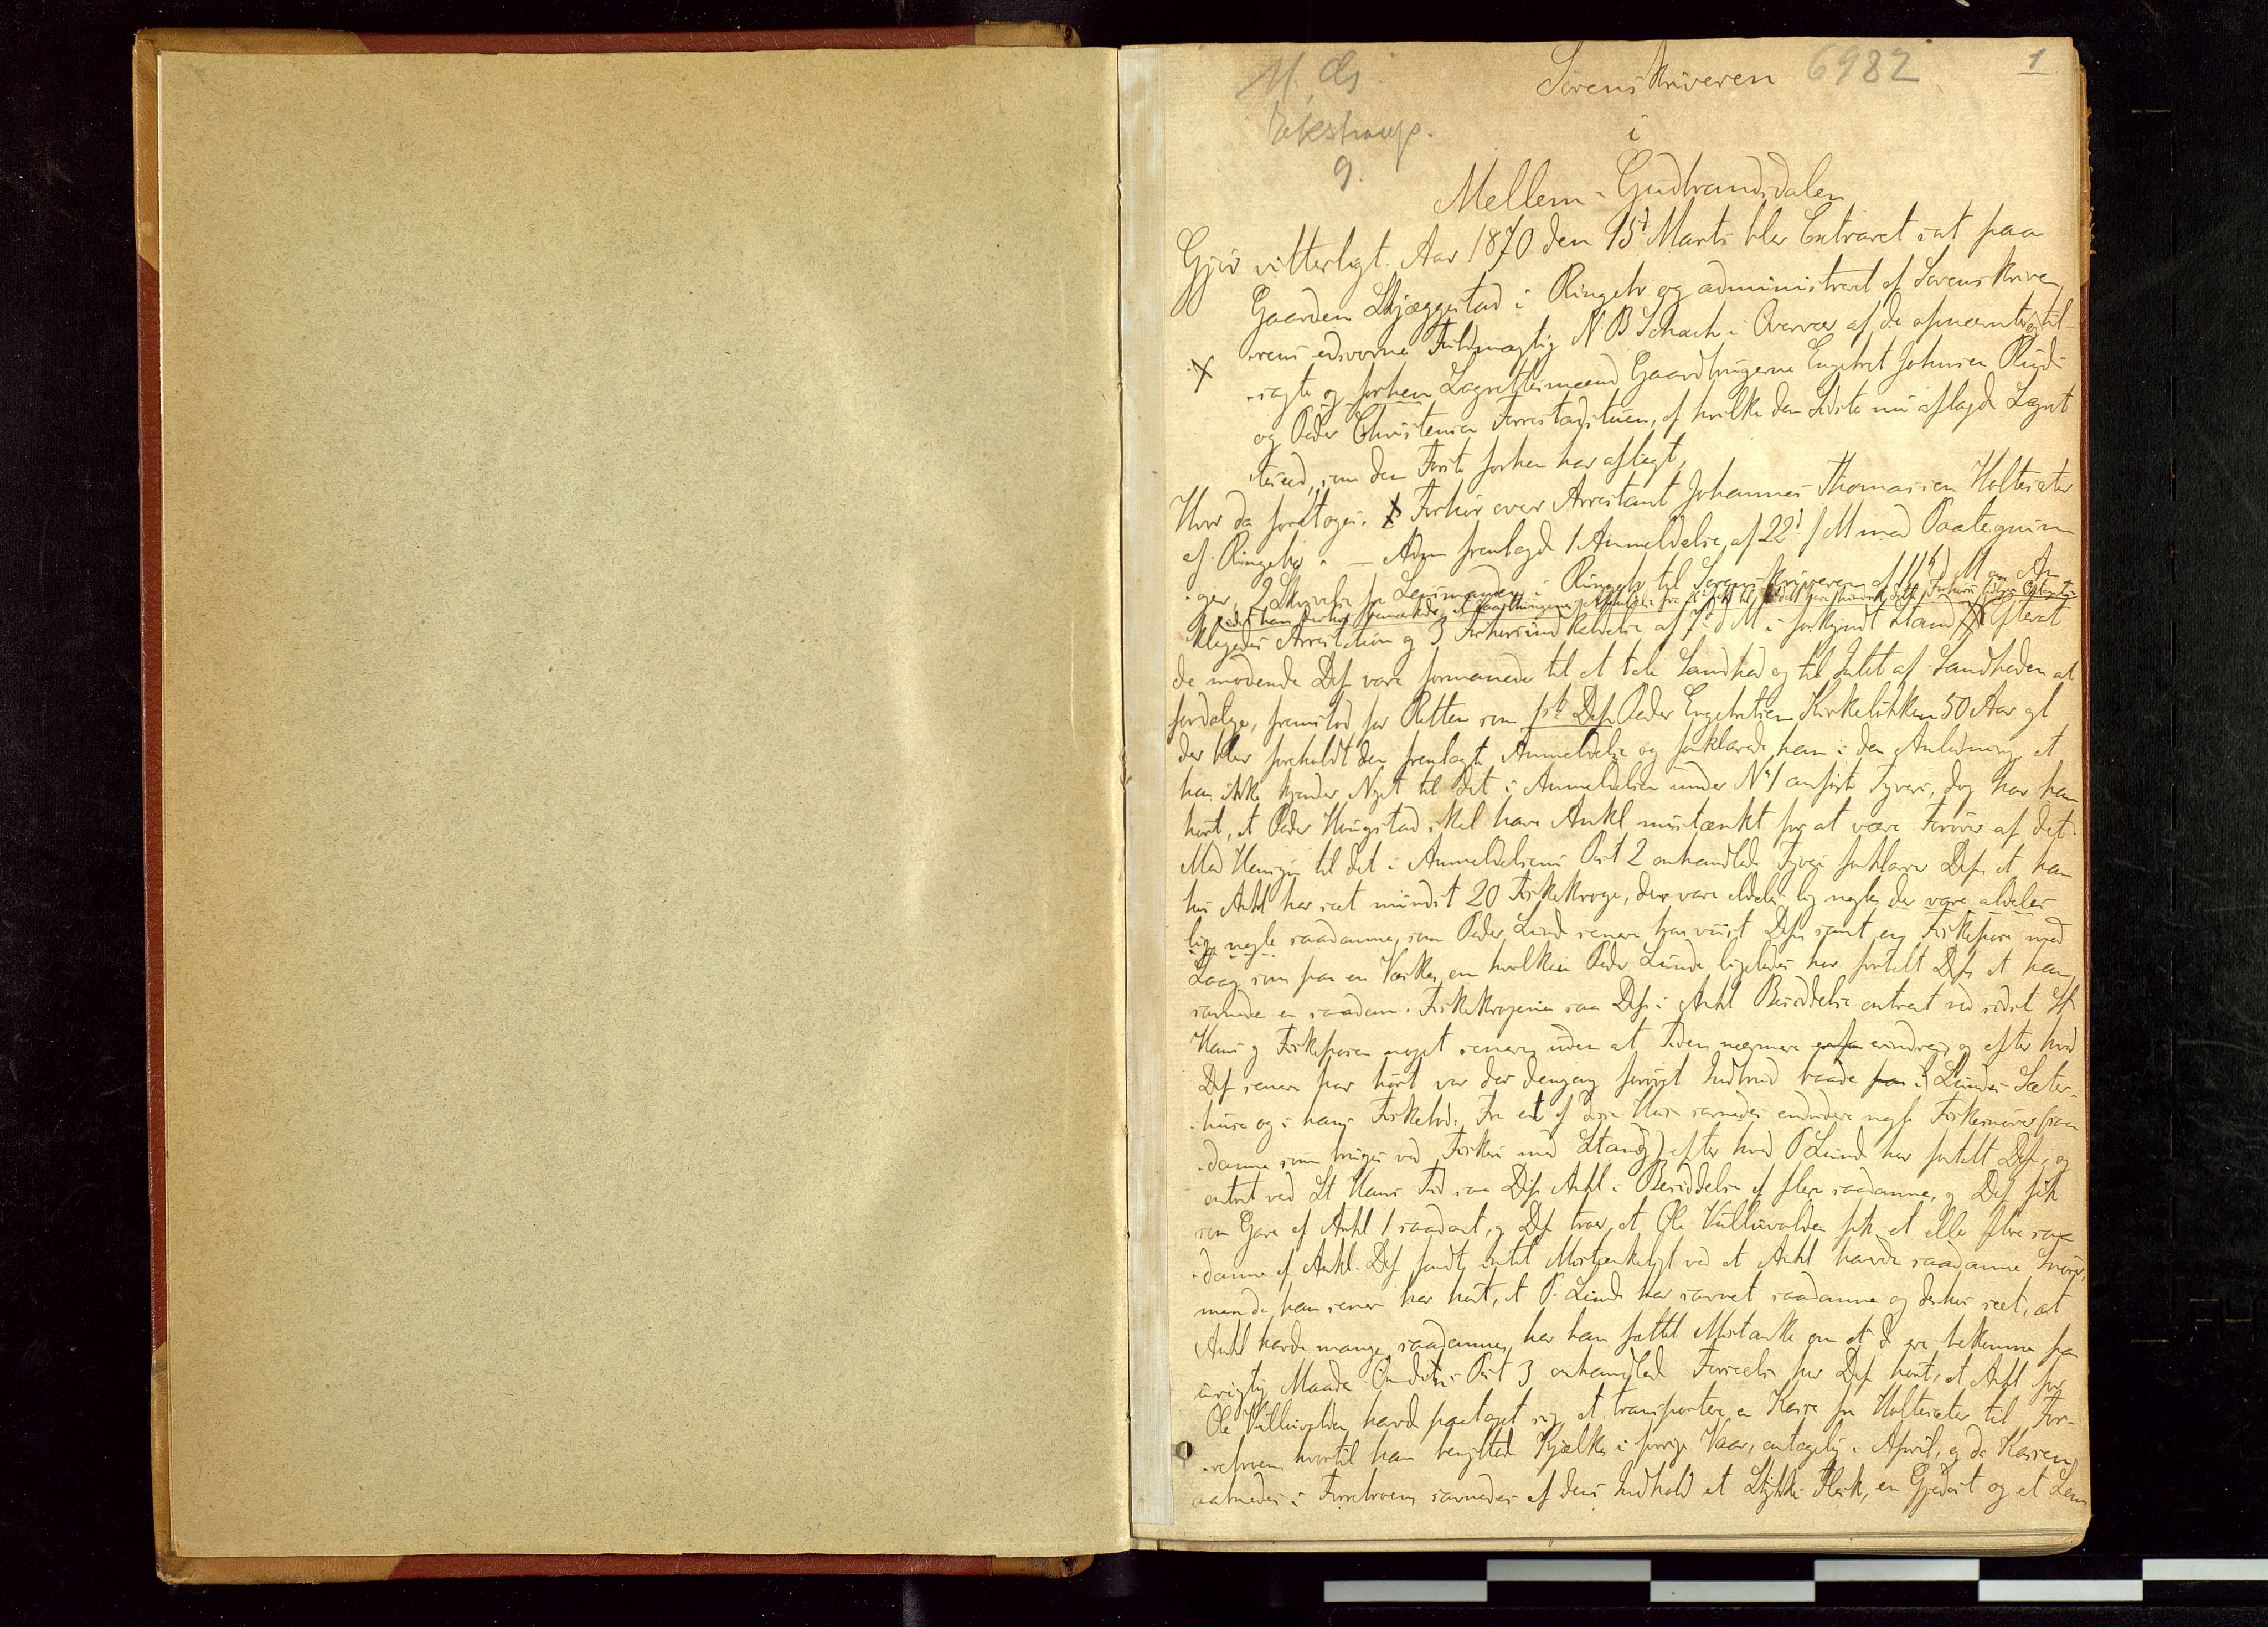 6982
1
Sorenskriveren
i
9.
Mellem-Gudbrandsdalen
Gjør vitterligt. Aar 1870 den 15d Marts blev Extraret sat paa
Gaarden Skjæggestad i Ringebo og administreret af Sorenskrive
rens edsvorne Fuldmægtig N B Schach i Overvær af de opnævnte og til-
sagte og forhen Lagrettesmænd Gaardbrugerne Engebret Johnsen Ruds
og Peder Christensen Forrestadstuen, af hvilke den Sidste nu aflagde Lagret
tesed, som den Første forhen har aflagt,
Hvor da foretoges: Forhør over Arrestant Johannes Thomassen Holtesæter
af Ringebo. — Adm fremlagde 1 Anmeldelse af 22d f M med Paategnin
ger, 2 Skrivelse fra Lensmanden i Ringebo til Sorenskriveren af d M om An
klagedes Arrestation og 3 Forhørsindkaldelse af d M i forkyndt Stand Efterat
de mødende Dep vare formanede til at tale Sandhed og til Intet af Sandheden at
fordølge, fremstod for Retten som 1ste Dep Peder Engebretsen Kirkeløkken 50 Aar gl
der blev foreholdt den fremlagte Anmeldelse og forklarede han i den Anledning, at
han ikke kjender Noget til det i Anmeldelsen under No 1 anførte Tyveri, dog har han
hørt, at Peder Haugstad skal have Ankl mistænkt for at være Forøver af det.
Med Hensyn til det i Anmeldelsens Post 2 omhandlede Tyveri forklarer Dep at han
hos Ankl har seet mindst 20 Fiskekroge, der vare aldeles lig nogle, der vare aldeles
lig nogle saadanne, som Peder Lunde senere har viist Dep, samt en Fiskepose med
Laag som paa en Væske, om hvilken Peder Lunde ligeledes har fortalt Dep, at han
savnede en saadan. Fiskekrogene saa Dep i Ankl Besiddelse omtrent ved sidste St
Hans og Fiskeposen noget senere, uden at Tiden nærmere erindres, og efter hvad
Dep senere har hørt var der dengang forøvet Indbrud baade i Lundes Sæter-
huse og i hans Fiskebod. Fra et af disse Huse savnedes endvidere nogle Fiskesnører (saa
danne som bruges ved Fiskeri med Stang) efter hvad P Lunde har fortalt Dep, og
omtrent ved St Hans Tid saa Dep Ankl i Besiddelse af flere saadanne, og Dep fik
som Gave af Ankl 1 saadant, og Dep troer, at Ole Kullusvolden fik et eller flere saa
danne af Ankl. Dep fandt Intet Mistænkeligt ved at Ankl havde saadanne Snører,
men da han senere har hørt, at P. Lunde har savnet saadanne og derhos seet, at
Ankl havde mange saadanne, har han fattet Mistanke om at de ere bekomne paa
urigtig Maade. Om den i Post 3 omhandlede Forseelse har Dep hørt, at Ankl for
Ole Kullusvolden havde paataget sig at transportere en Kasse fra Holtesæter til For-
hvortil han benyttede Kjælke i forrige Vaar, antagelig i April, og da Kassen
aabnedes i savnedes af dens Indhold et Stykke Flesk, en Gjedost og et